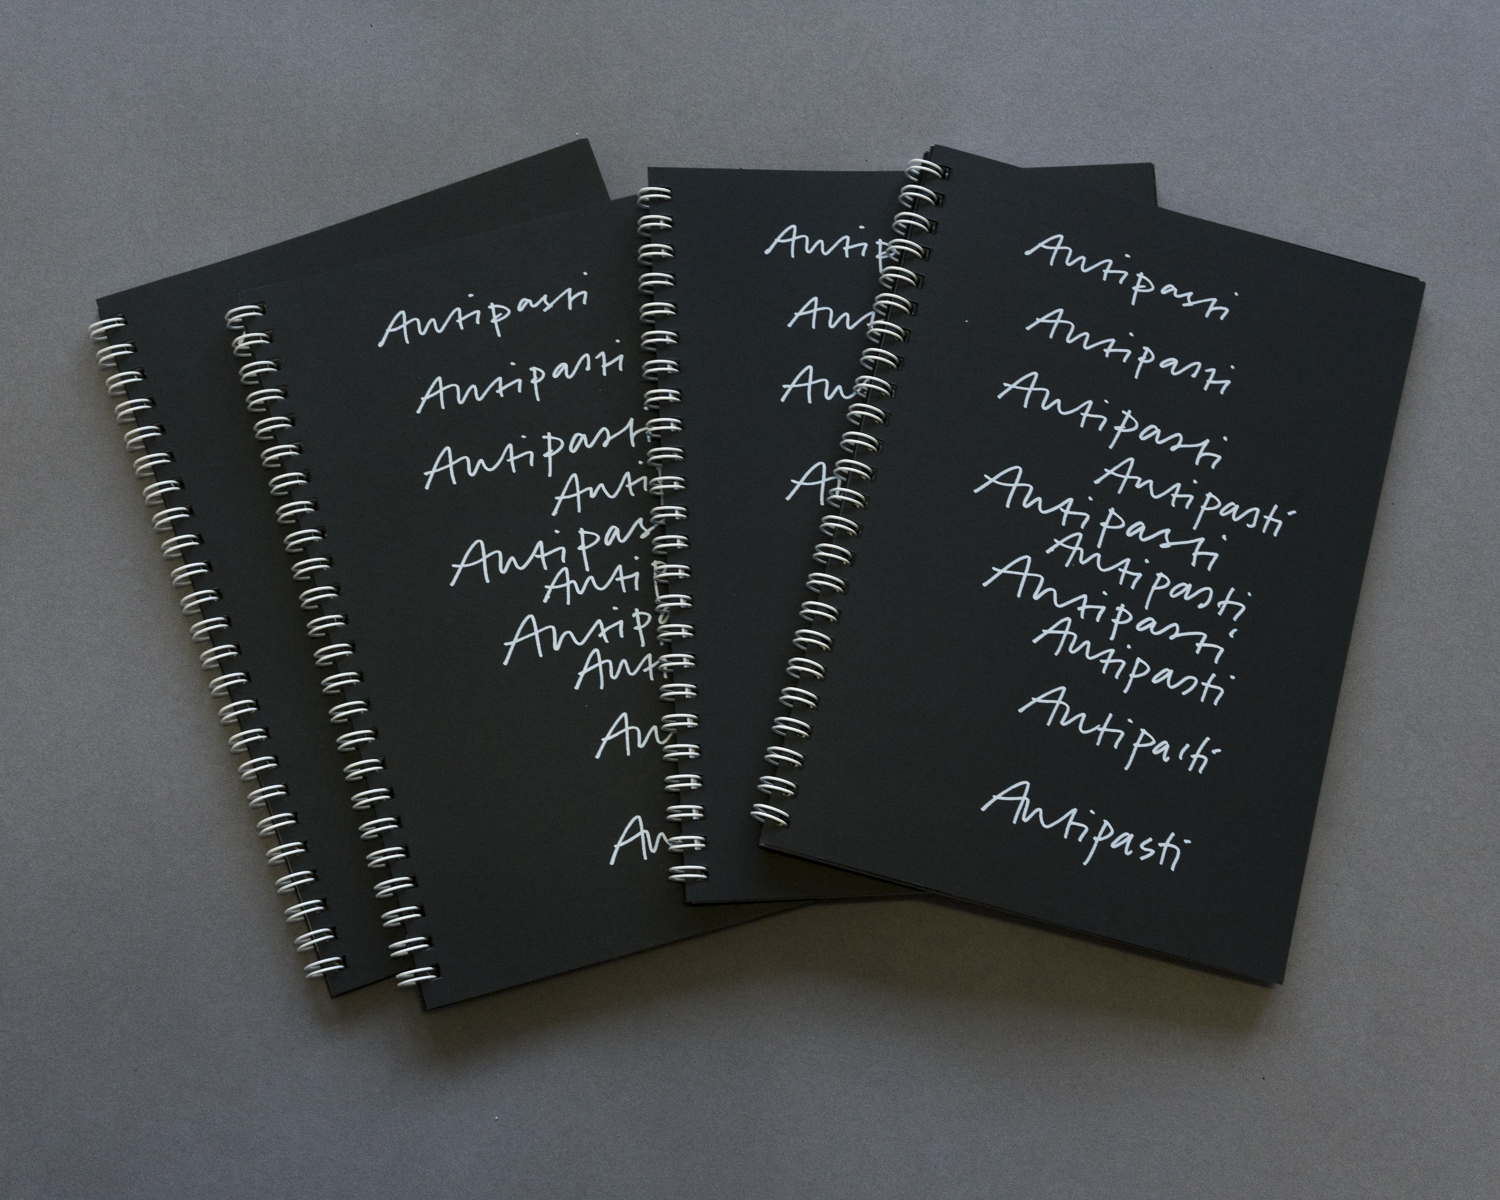 Antipasti
Antipasti
Antipasti
Anti
Antipas
Antip
Antip
Anti
An
An
Antip
An
An
A
Antipasti
Antipasti
Antipasti
Antipasti
Antipasti
Antipasti
Antipasti
Antipasti
Antipasti
Antipasti